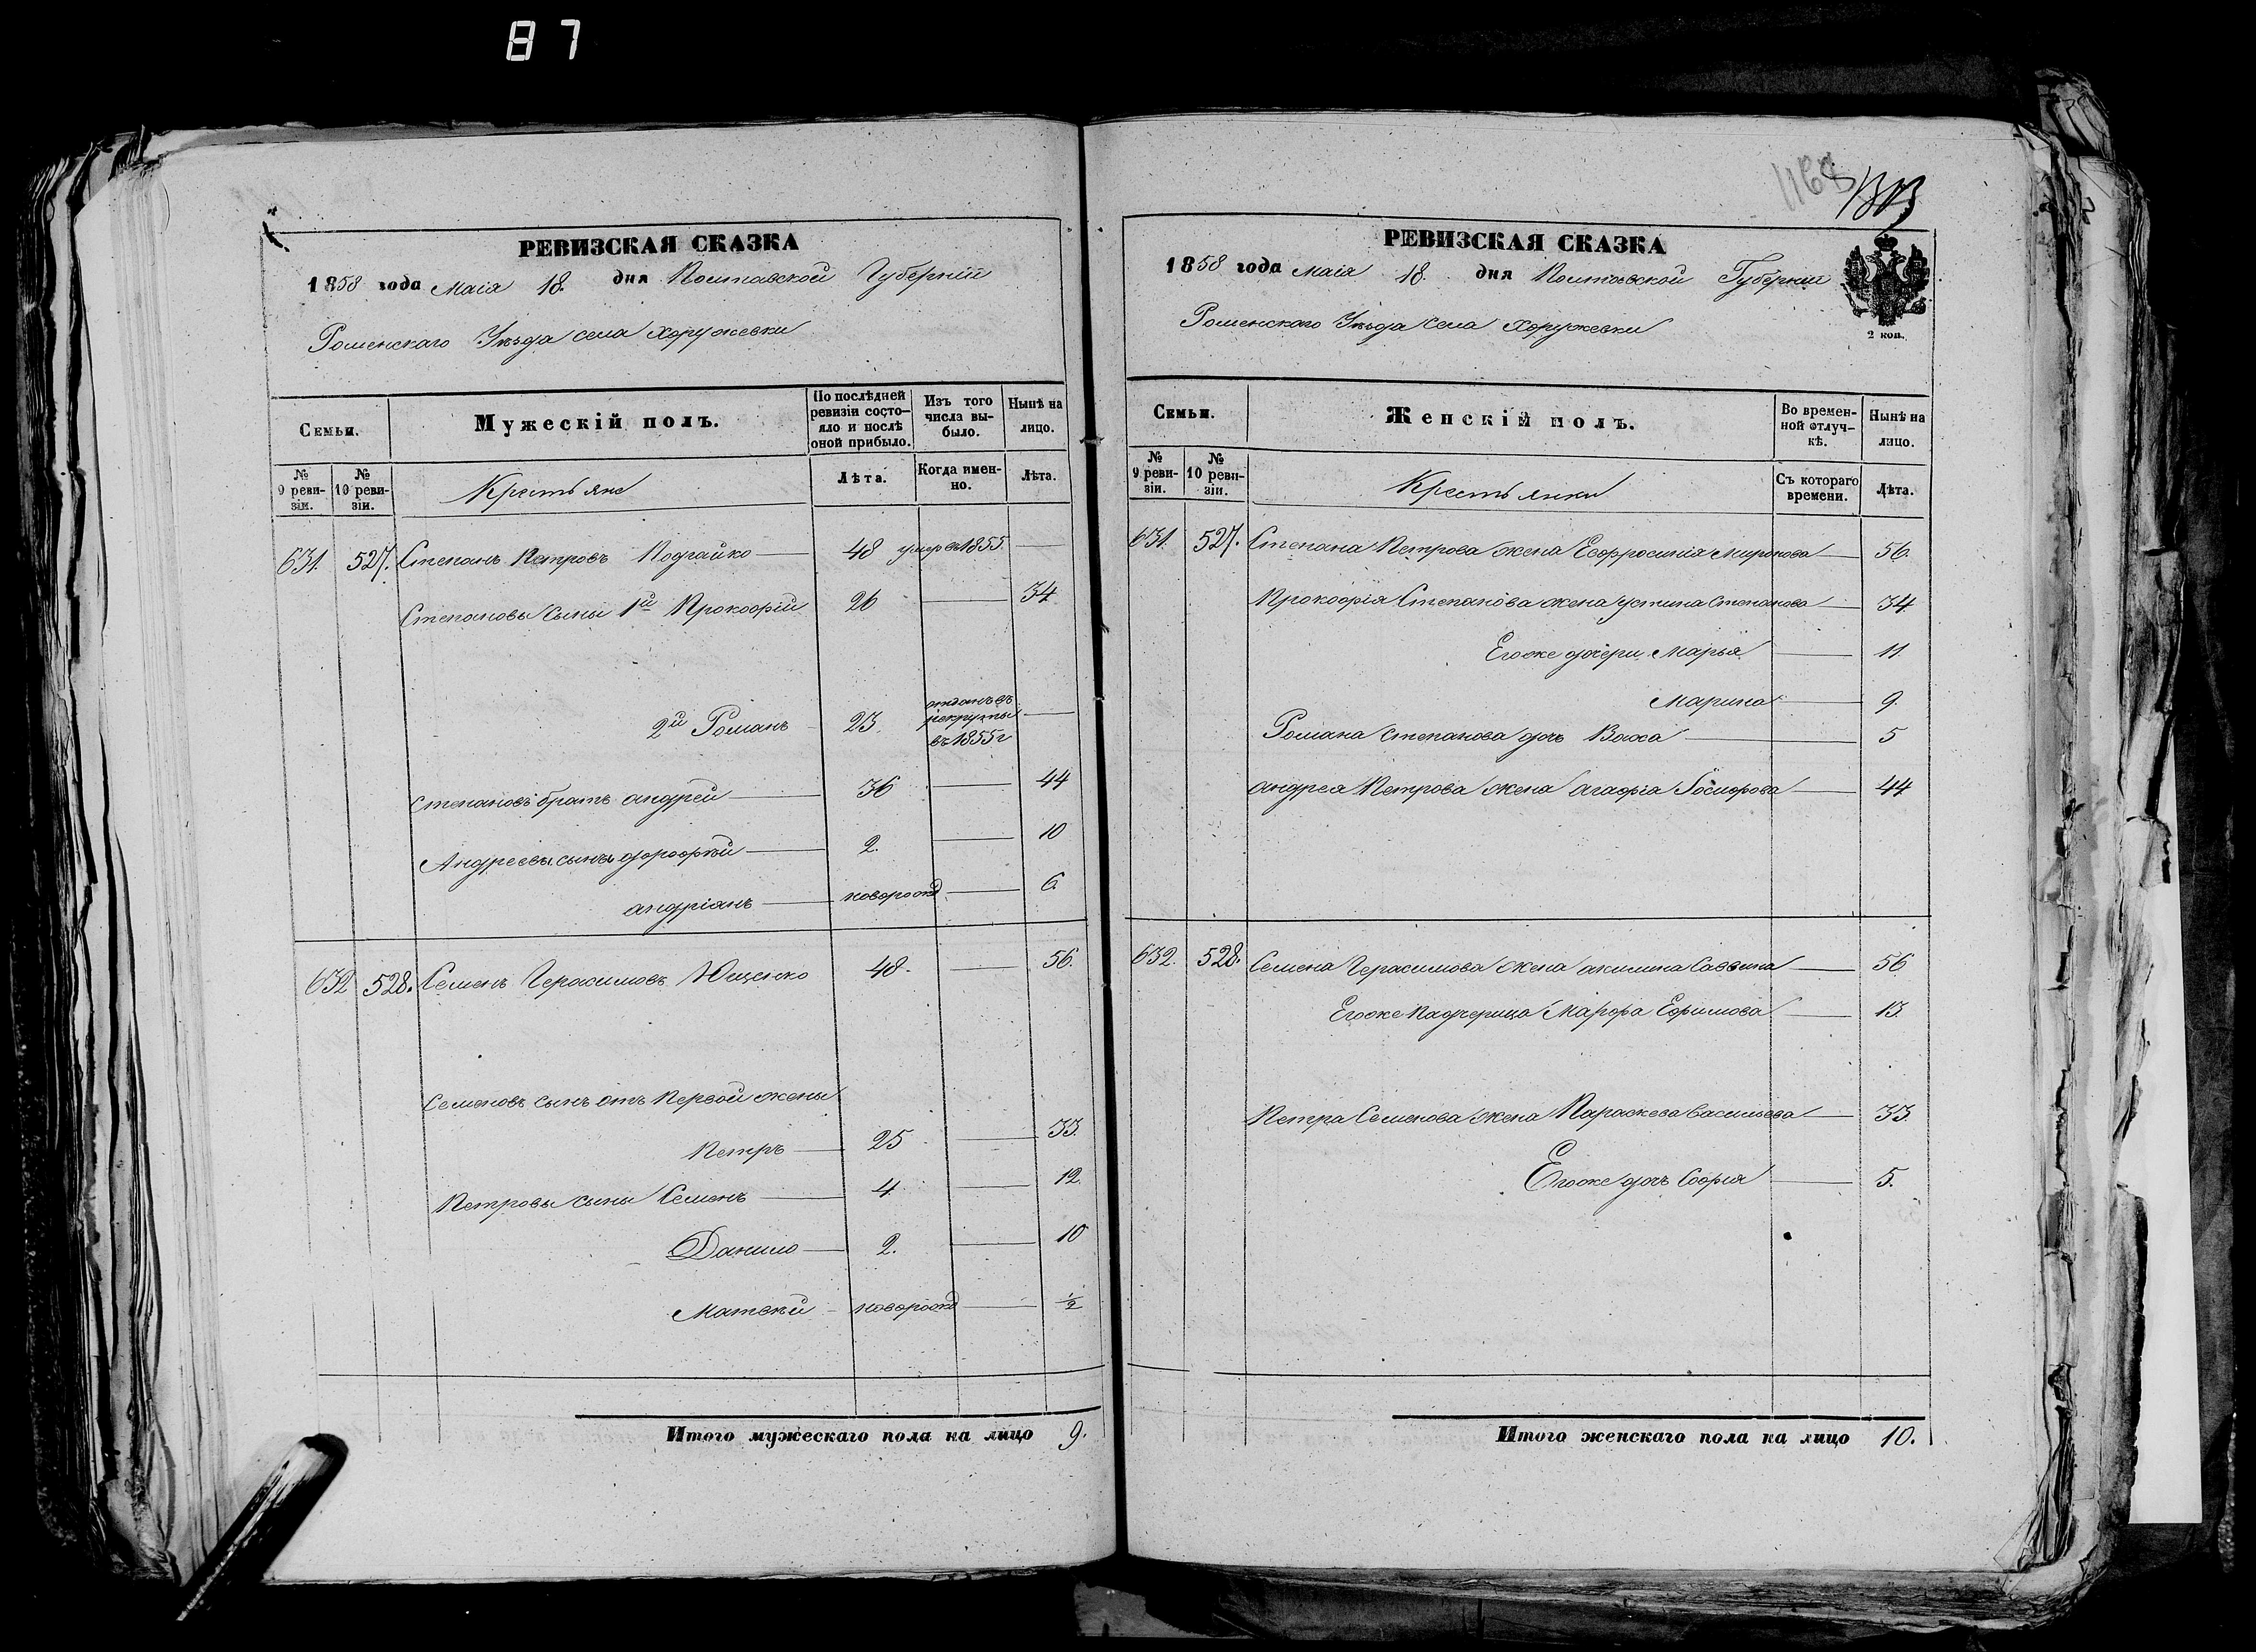 87
РЕВИЗСКАЯ СКАЗКА
1858 года Маія 18. дня Полтавской Губерніи
Роменскаго Уѣзда села Хоружевки
Семьи.
Мужескій полъ.
По послѣдней ревизіи состо-
яло и послѣ оной прибыло.
Изъ того числа вы-
было.
Нынѣ на лицо.
№ 9 реви-
зіи.
№ 10 реви-
зіи.
Крестьяне
Лѣта.
Когда имен-
но.
Лѣта.
631. 527. Степанъ Петровъ Подгайко 48 умеръ 1855.
Степановы сыны 1й Прокофій 26 34
2й Романъ 23. отданъ въ рекруты въ 1855 г
Степановъ братъ Андрей 36 44
Андреевы сыны Дорофѣй 2. 10
Андріанъ новорожд 6.
632 528. Семенъ Герасимовъ Ющенко 48. 56.
Семеновъ сынъ отъ первой жены
Петръ 25 33.
Петровы сыны Семенъ 4 12.
Данило 2. 10
Матвѣй новорожд ½
Итого мужескаго пола на лицо 9.
1168
РЕВИЗСКАЯ СКАЗКА
1858 года Маія 18. дня Полтавской Губерніи
Роменскаго Уѣзда села Хоружевки
2 коп.
Семьи.
Женскій полъ.
Во времен-
ной отлуч-
кѣ.
Нынѣ на лицо.
№ 9 реви-
зіи.
№ 10 реви-
зіи.
Крестьянки
Съ котораго времени.
Лѣта.
631. 527. Степана Петрова жена Евфросинія Миронова 56.
Прокофія Степанова жена Устина Степанова 34
Егоже дочери Марья 11
Марина 9.
Романа Степанова дочь Васса 5
Андрея Петрова жена Агафіа 44
632. 528. Семена Герасимова жена Акилина Саввина 56
Егоже падчерица Марфа Ефимова 13.
Петра Семенова жена Параскева Васильева 33.
Егоже дочь Софія 5.
Итого женскаго пола на лицо 10.